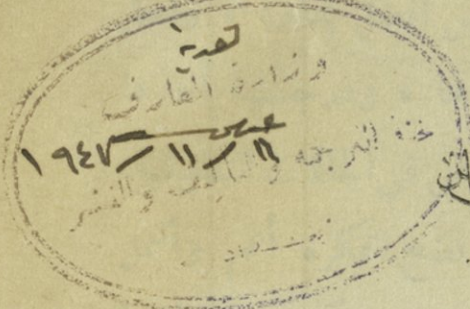 وزارة المعارف
١١/١١/١٩٤٧
لجنة الترجمة والتأليف والنشر
بغداد